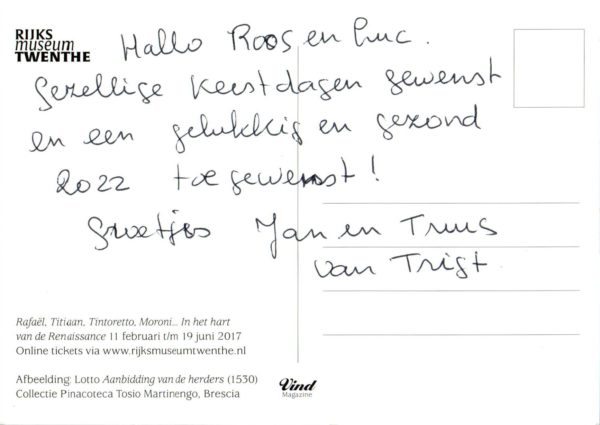 RIJKS
museum
TWENTHE
Hallo Roos en Luc.
Gezellige Keestdagen gewenst
en een gelukkig en gezond
2022 toegewenst!
Groetjes Jan en Truus
van Trigt
Rafaël, Titiaan, Tintoretto, Moroni... In het hart
van de Renaissance 11 februari t/m 19 juni 2017
Online tickets via www.rijksmuseumtwenthe.nl
Afbeelding: Lotto Aanbidding van de herders (1530)
Collectie Pinacoteca Tosio Martinengo, Brescia
Vind
Magazine